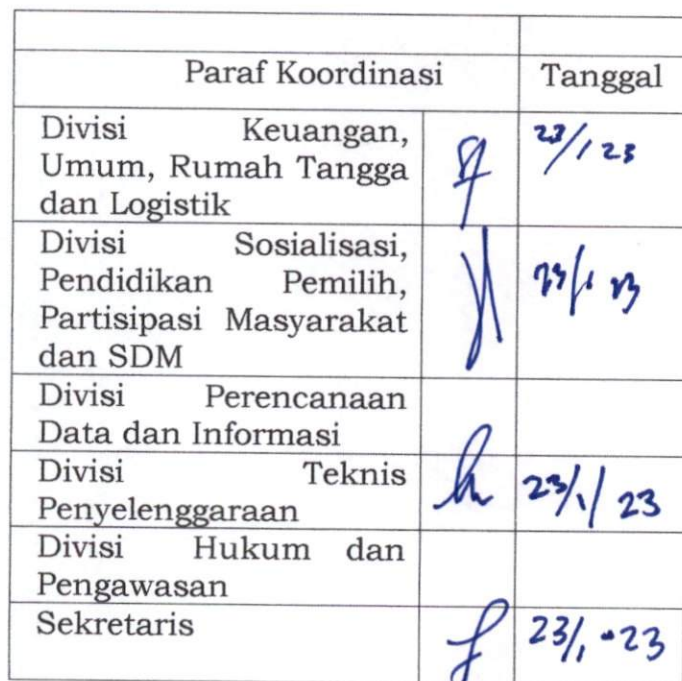 Paraf Koordinasi Tanggal
Divisi Keuangan,
Umum, Rumah Tangga
dan Logistik
23/1 23
Divisi Sosialisasi,
Pendidikan Pemilih,
Partisipasi Masyarakat
dan SDM
23/1 23
Divisi Perencanaan
Data dan Informasi
Divisi Teknis
Penyelenggaraan
23/1/23
Divisi Hukum dan
Pengawasan
Sekretaris
23/1-23